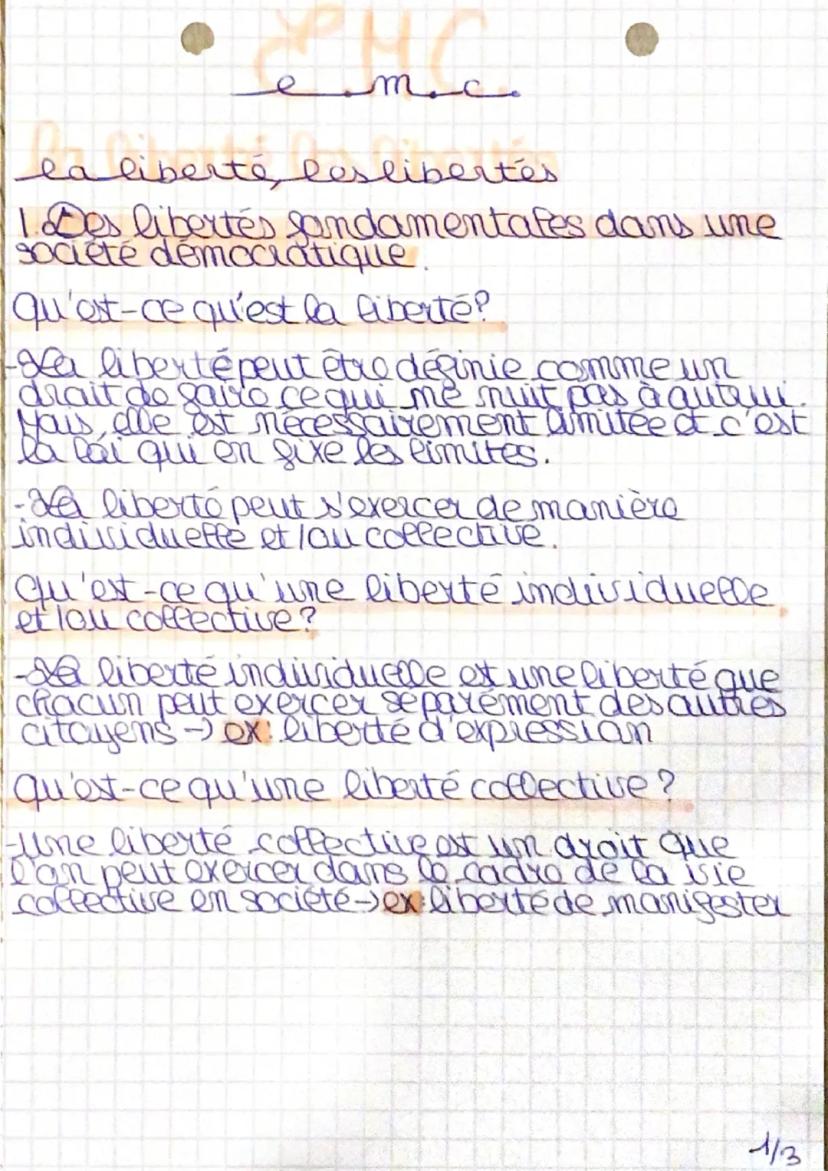 EMC
e.m.c.
la liberté, les libertés
la liberté, les libertés
1. Des libertés fondamentales dans une
société démocratique.
Qu'est-ce qu'est la liberté?
-La liberté peut être définie comme un
droit de faire ce qui ne nuit pas à autrui.
Mais, elle est nécessairement limitée et c'est
la loi qui en fixe les limites.
-La liberté peut s'exercer de manière
individuelle et/ou collective.
Qu'est-ce qu'une liberté individuelle
et/ou collective?
-La liberté individuelle est une liberté que
chacun peut exercer séparément des autres
citoyens → ex: liberté d'expression
Qu'est-ce qu'une liberté collective?
-Une liberté collective est un droit que
l'on peut exercer dans le cadre de la vie
collective en société → ex: liberté de manifester
1/3